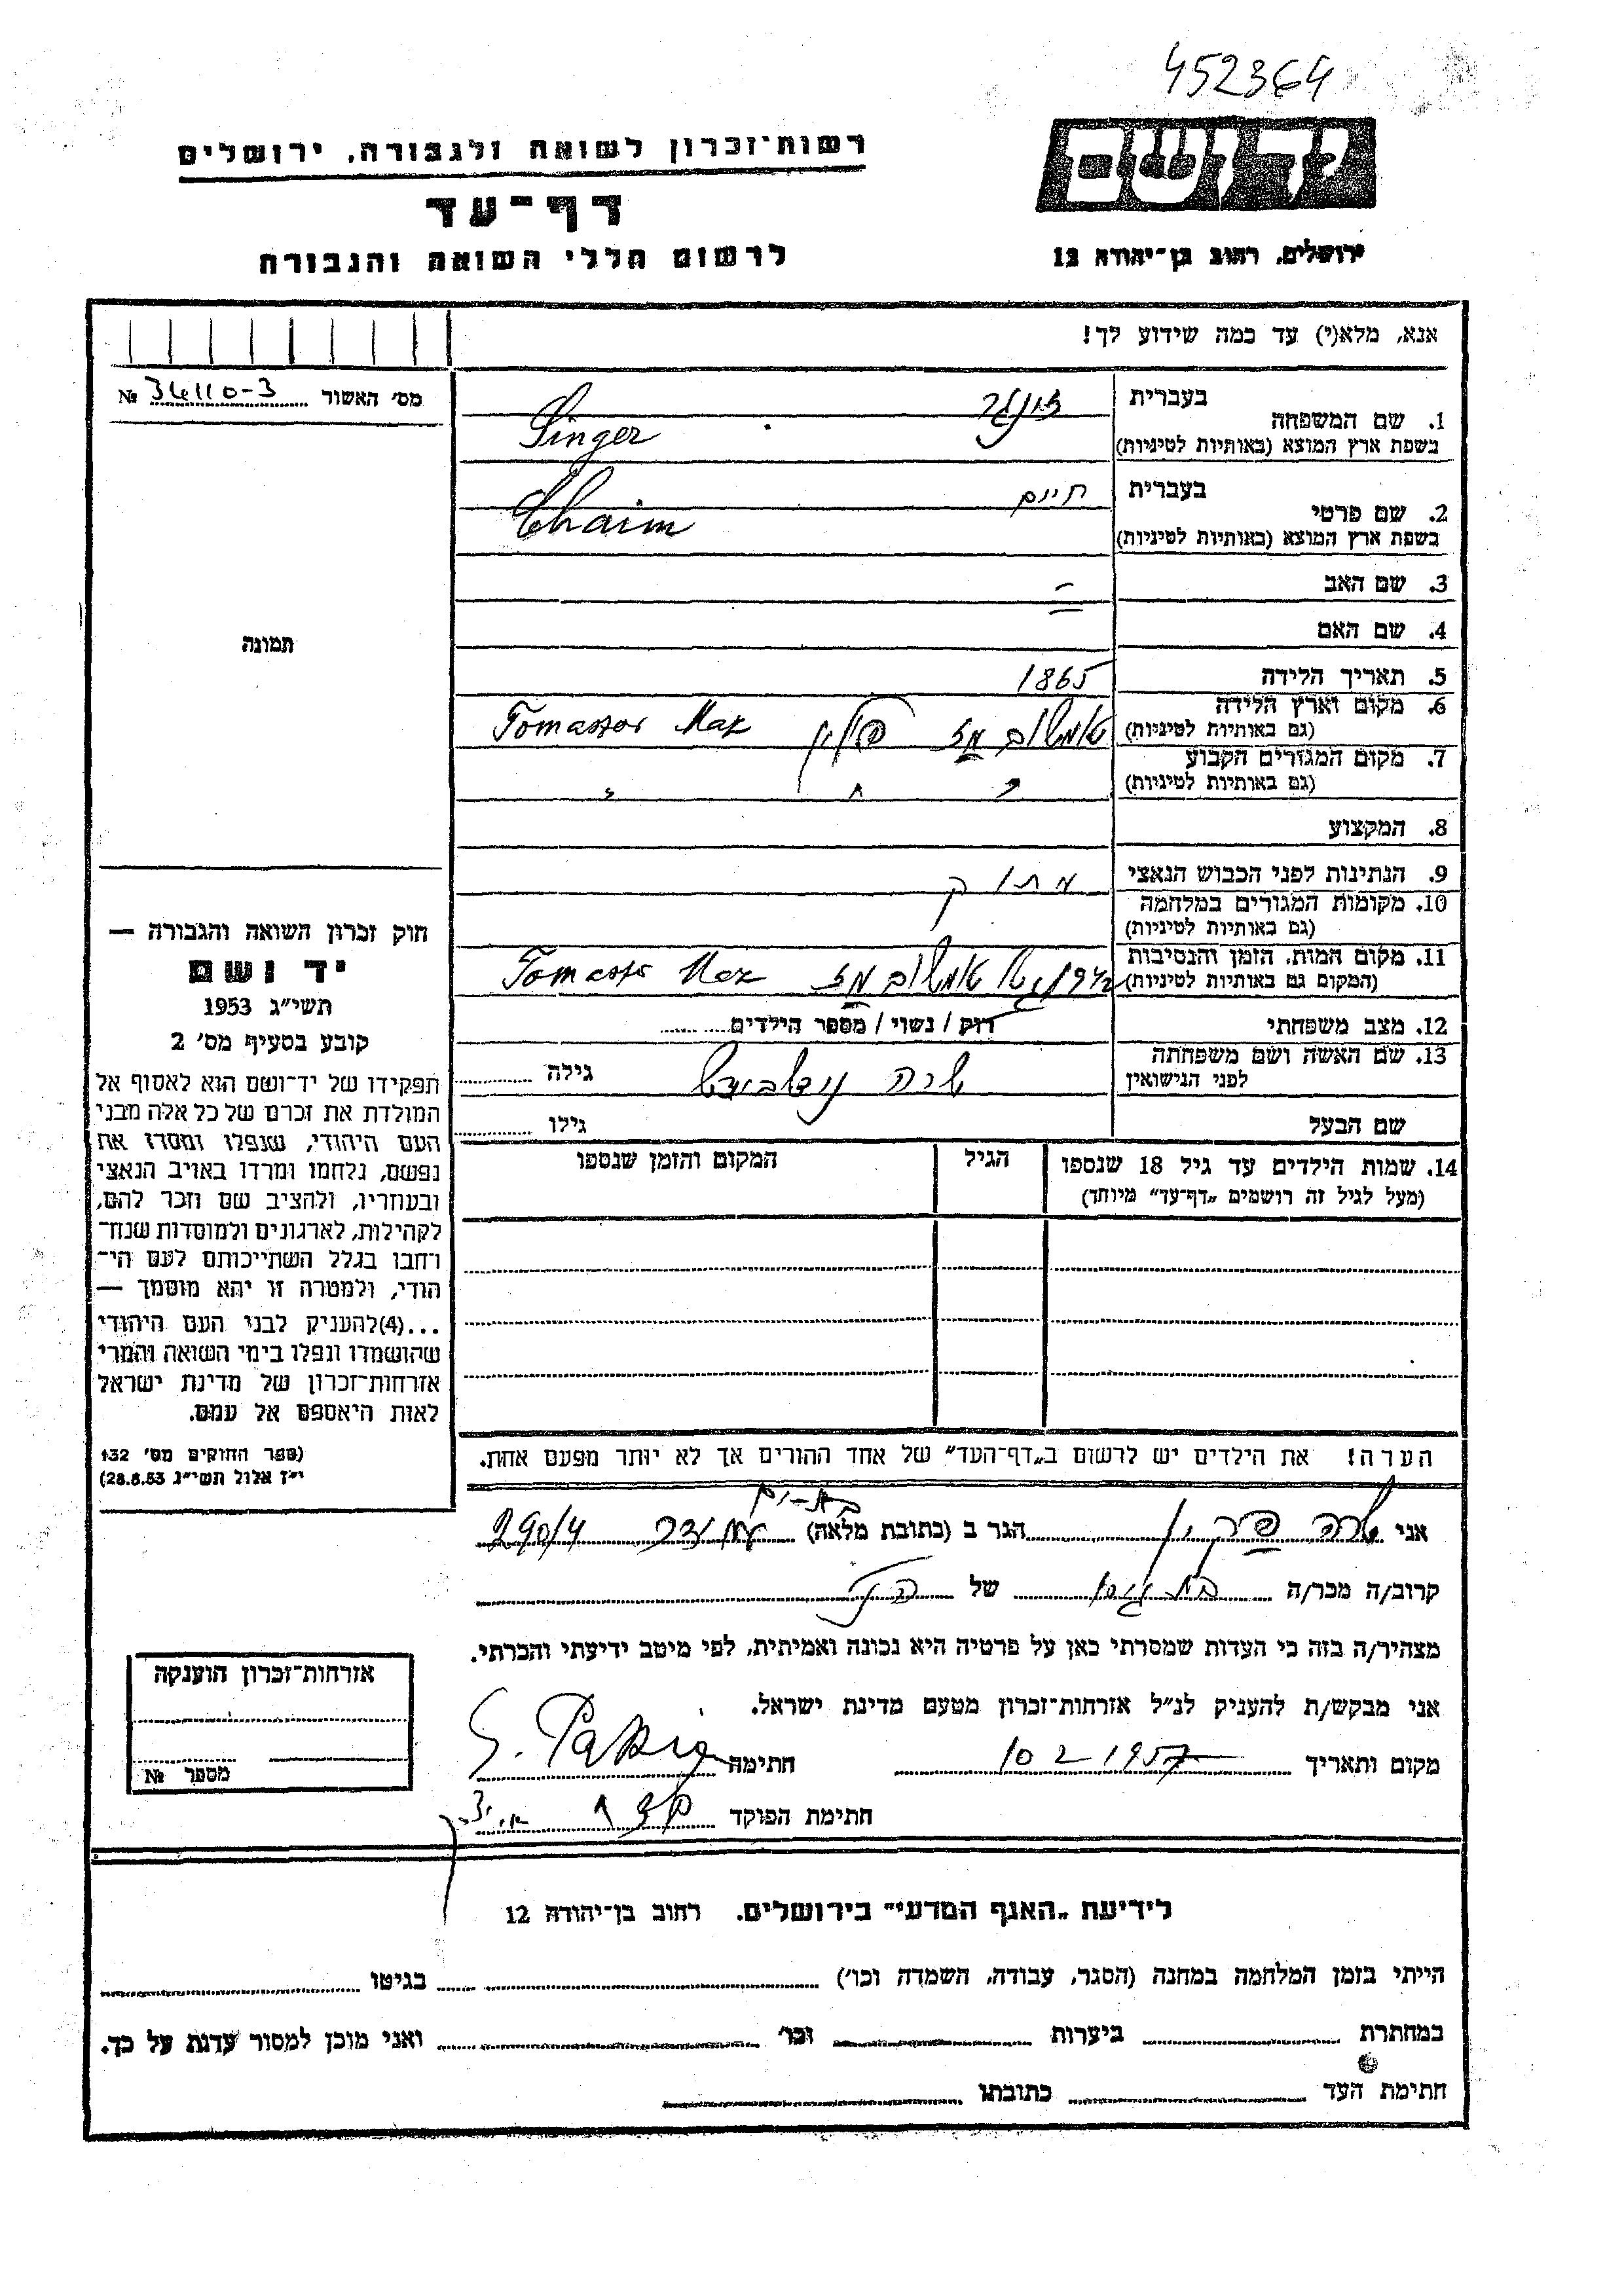 452364
רשות־זכרון לשואה ולגבורה, ירושלים
יד ושם
דף־עד
לרשום חללי השואה והגבורה
ירושלים, רחוב בן־יהודה 12
אנא, מלא(י) עד כמה שידוע לך!
מס׳ האשור 34110-3 №
1. שם המשפחה
בעברית זינגר
בשפת ארץ המוצא (באותיות לטיניות) Singer
2. שם פרטי
בעברית חיים
בשפת ארץ המוצא (באותיות לטיניות) Chaim
3. שם האב —
4. שם האם
5. תאריך הלידה 1865
6. מקום וארץ הלידה
(גם באותיות לטיניות) פולין Tomaszow Maz
7. מקום המגורים הקבוע
(גם באותיות לטיניות)
8. המקצוע
9. הנתינות לפני הכבוש הנאצי
10. מקומות המגורים במלחמה
(גם באותיות לטיניות)
11. מקום המות, הזמן והנסיבות
(המקום גם באותיות לטיניות) Tomaszo Maz
12. מצב משפחתי רוק / נשוי / מספר הילדים
13. שם האשה ושם משפחתה
לפני הנישואין שרה גילה
שם הבעל גילו
14. שמות הילדים עד גיל 18 שנספו הגיל המקום והזמן שנספו
(מעל לגיל זה רושמים „דף־עד״ מיוחד)
הערה! את הילדים יש לרשום ב„דף־העד״ של אחד ההורים אך לא יותר מפעם אחת.
תמונה
חוק זכרון השואה והגבורה —
יד ושם
תשי״ג 1953
קובע בסעיף מס׳ 2
תפקידו של יד־ושם הוא לאסוף אל
המולדת את זכרם של כל אלה מבני
העם היהודי, שנפלו ומסרו את
נפשם, נלחמו ומרדו באויב הנאצי
ובעוזריו, ולהציב שם וזכר להם,
לקהילות, לארגונים ולמוסדות שנח־
רחבו בגלל השתייכותם לעם הי־
הודי, ולמטרה זו יהא מוסמך —
...(4)להעניק לבני העם היהודי
שהושמדו ונפלו בימי השואה והמרי
אזרחות־זכרון של מדינת ישראל
לאות היאספם אל עמם.
(ספר החוקים מס׳ 132
י״ז אלול תשי״ג 28.8.53)
בת-ים
אני שרה הגר ב (כתובת מלאה) 290/4
קרוב/ה מכר/ה של
מצהיר/ה בזה כי העדות שמסרתי כאן על פרטיה היא נכונה ואמיתית, לפי מיטב ידיעתי והכרתי.
אני מבקש/ת להעניק לנ״ל אזרחות־זכרון מטעם מדינת ישראל.
מקום ותאריך 10 2 1957 חתימה
חתימת הפוקד
אזרחות־זכרון הוענקה
מספר №
לידיעת „האגף המדעי״ בירושלים, רחוב בן־יהודה 12
הייתי בזמן המלחמה במחנה (הסגר, עבודה, השמדה וכו׳) בגיטו
במחתרת ביערות וכו׳ ואני מוכן למסור עדות על כך.
חתימת העד כתובתו